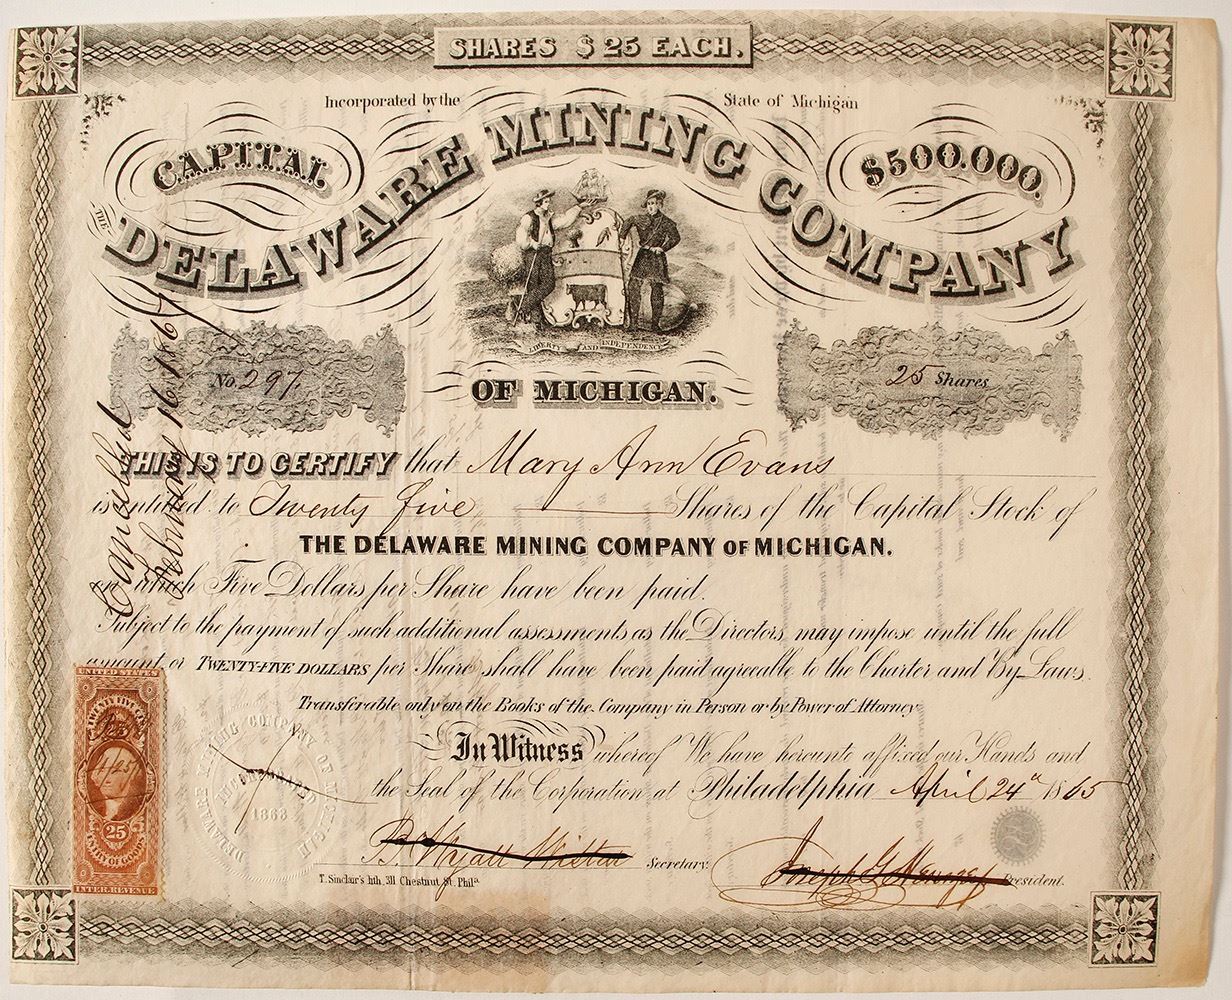 SHARES $25 EACH.
Incorporated by the State of Michigan
CAPITAL $500.000.
THE DELAWARE MINING COMPANY
LIBERTY AND INDEPENDENCE
No. 297. 25 Shares
OF MICHIGAN.
Cancelled
February 16 1867
THIS IS TO CERTIFY that Mary Ann Evans
is entitled to Twenty five Shares of the Capital Stock of
THE DELAWARE MINING COMPANY OF MICHIGAN.
on which Five Dollars per Share have been paid.
Subject to the payment of such additional assessments as the Directors may impose until the full
amount of TWENTY-FIVE DOLLARS per Share shall have been paid agreeable to the Charter and By-Laws.
Transferable only on the Books of the Company in Person or by Power of Attorney
In Witness whereof We have hereunto affixed our Hands and
the Seal of the Corporation at Philadelphia April 24th 1865
B Wyatt Secretary.
Joseph G President.
T. Sinclair's lith, 311 Chestnut St. Phila
UNITED STATES
TWENTY FIVE CTS
25
4/25
25
ENTRY OF GOODS
INTER. REVENUE
DELAWARE MINING COMPANY OF MICHIGAN
INCORPORATED
1863